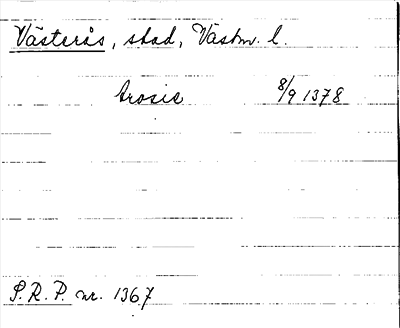 Västerås, stad, Västm. l.
Arosie 8/9 1378
S.R.P. nr. 1367